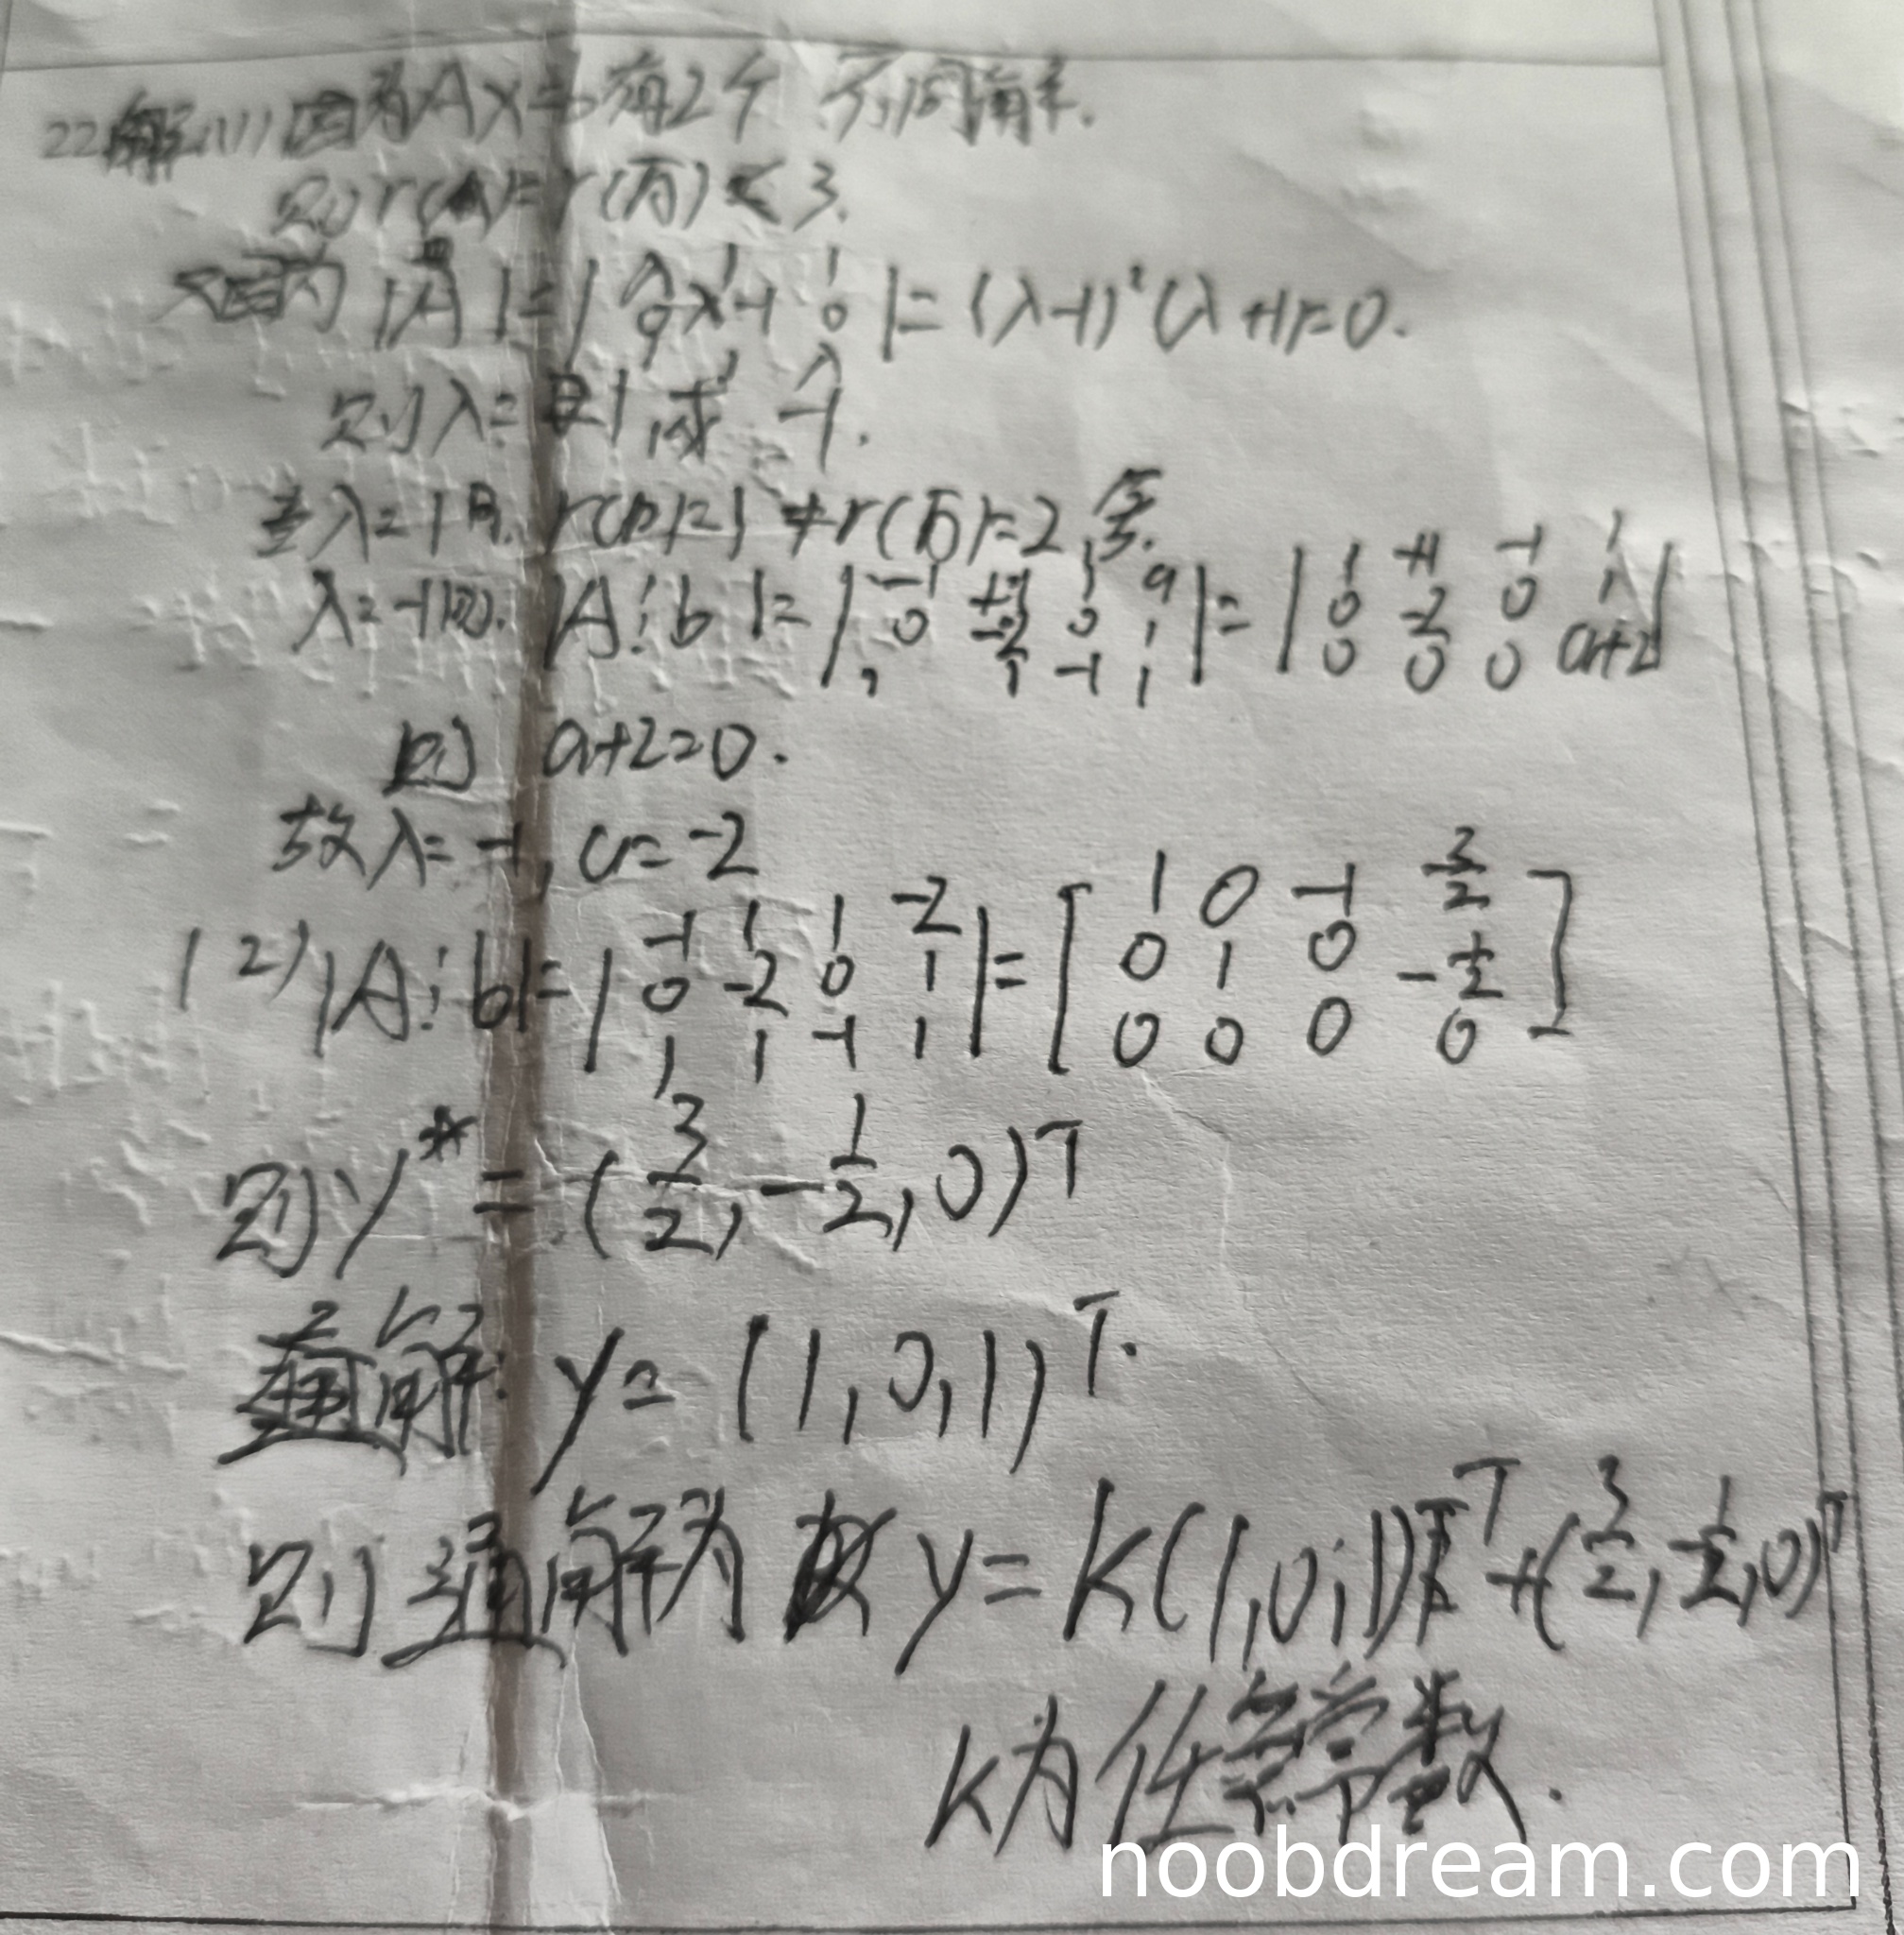 22解:(1)因为Ax=b有2个不同解.
则r(A)=r(Ā)<3.
又因为 |A|=| λ 1 1
0 λ-1 0
1 1 λ |=(λ-1)²(λ+1)=0.
则λ=1或-1.
当λ=1时. r(A)=1≠r(Ā)=2,舍.
λ=-1时. |A⋮b|=| -1 +1 1 a
0 -2 0 1
1 1 -1 1 |=| 1 +1 -1 1
0 -2 0 1
0 0 0 a+2 |
则 a+2=0.
故λ=-1, a=-2
(2) |A⋮b|=| -1 1 1 -2
0 -2 0 1
1 1 -1 1 |=[ 1 0 -1 3/2
0 1 0 -1/2
0 0 0 0 ]
则y*=(3/2,-1/2,0)ᵀ
解: y=(1,0,1)ᵀ.
则通解为 y=k(1,0,1)ᵀ+(3/2,-1/2,0)ᵀ
k为任意常数.
noobdream.com